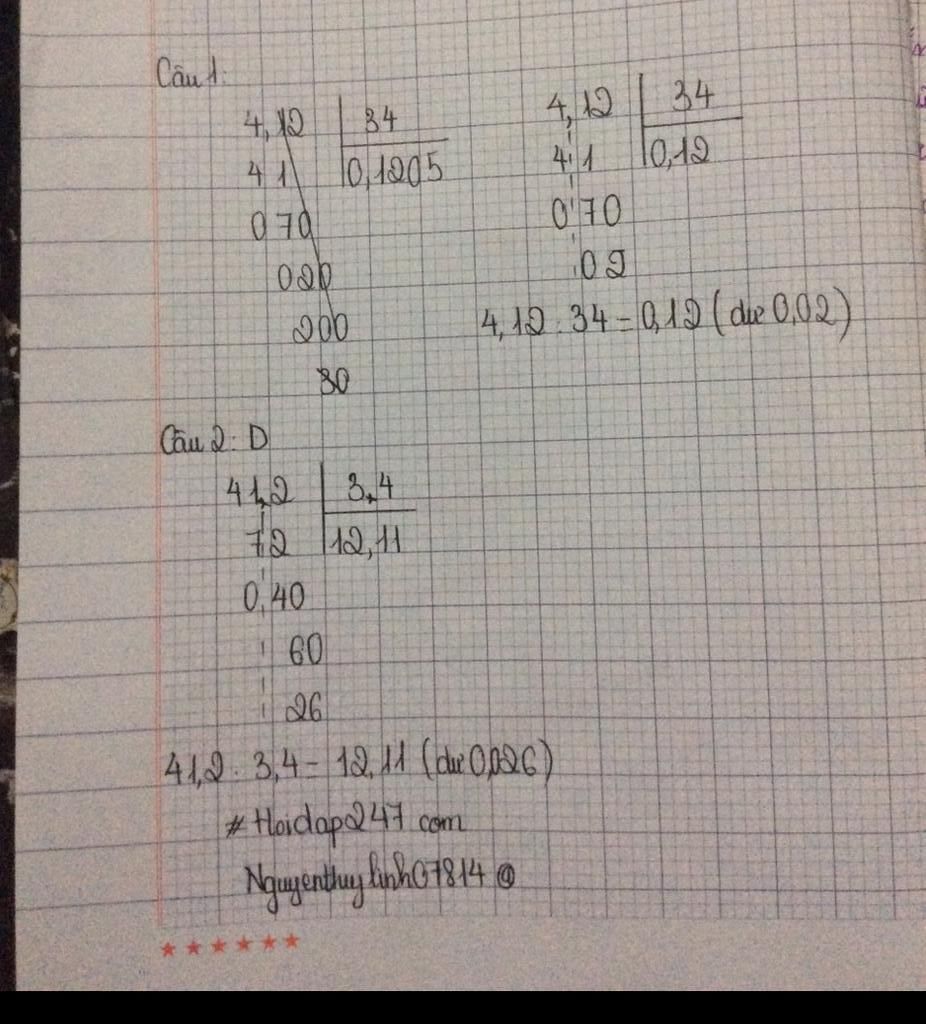 Câu 1:
4,12 34
41 0,1205
070
020
200
30
4,12 34
41 0,12
070
02
4,12 : 34 = 0,12 (dư 0,02)
Câu 2: D
41,2 3,4
72 12,11
0,40
60
26
41,2 : 3,4 = 12,11 (dư 0,026)
# Hoidap247 com
Nguyenthuylinh07814